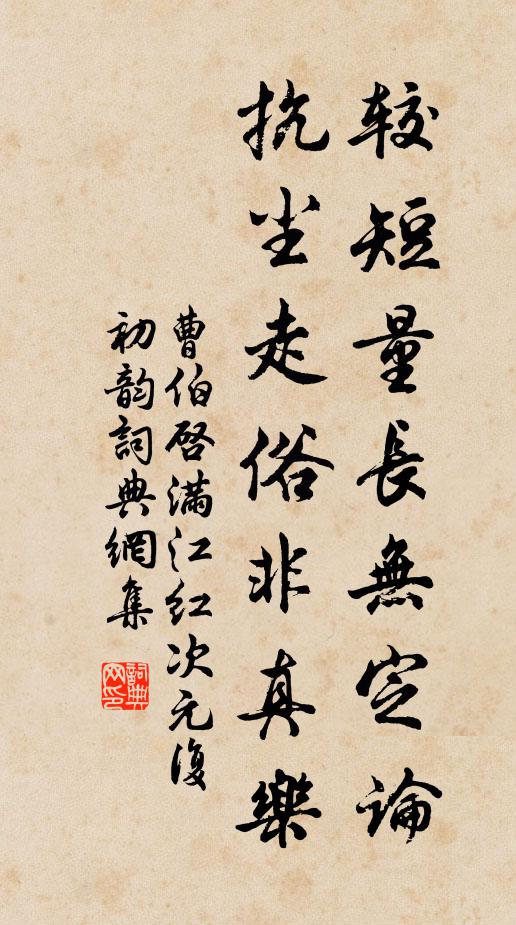 較短量長無定論
抗尘走俗非真樂
曹伯啓滿江红次元復
初韵詞典網集
詞典网印